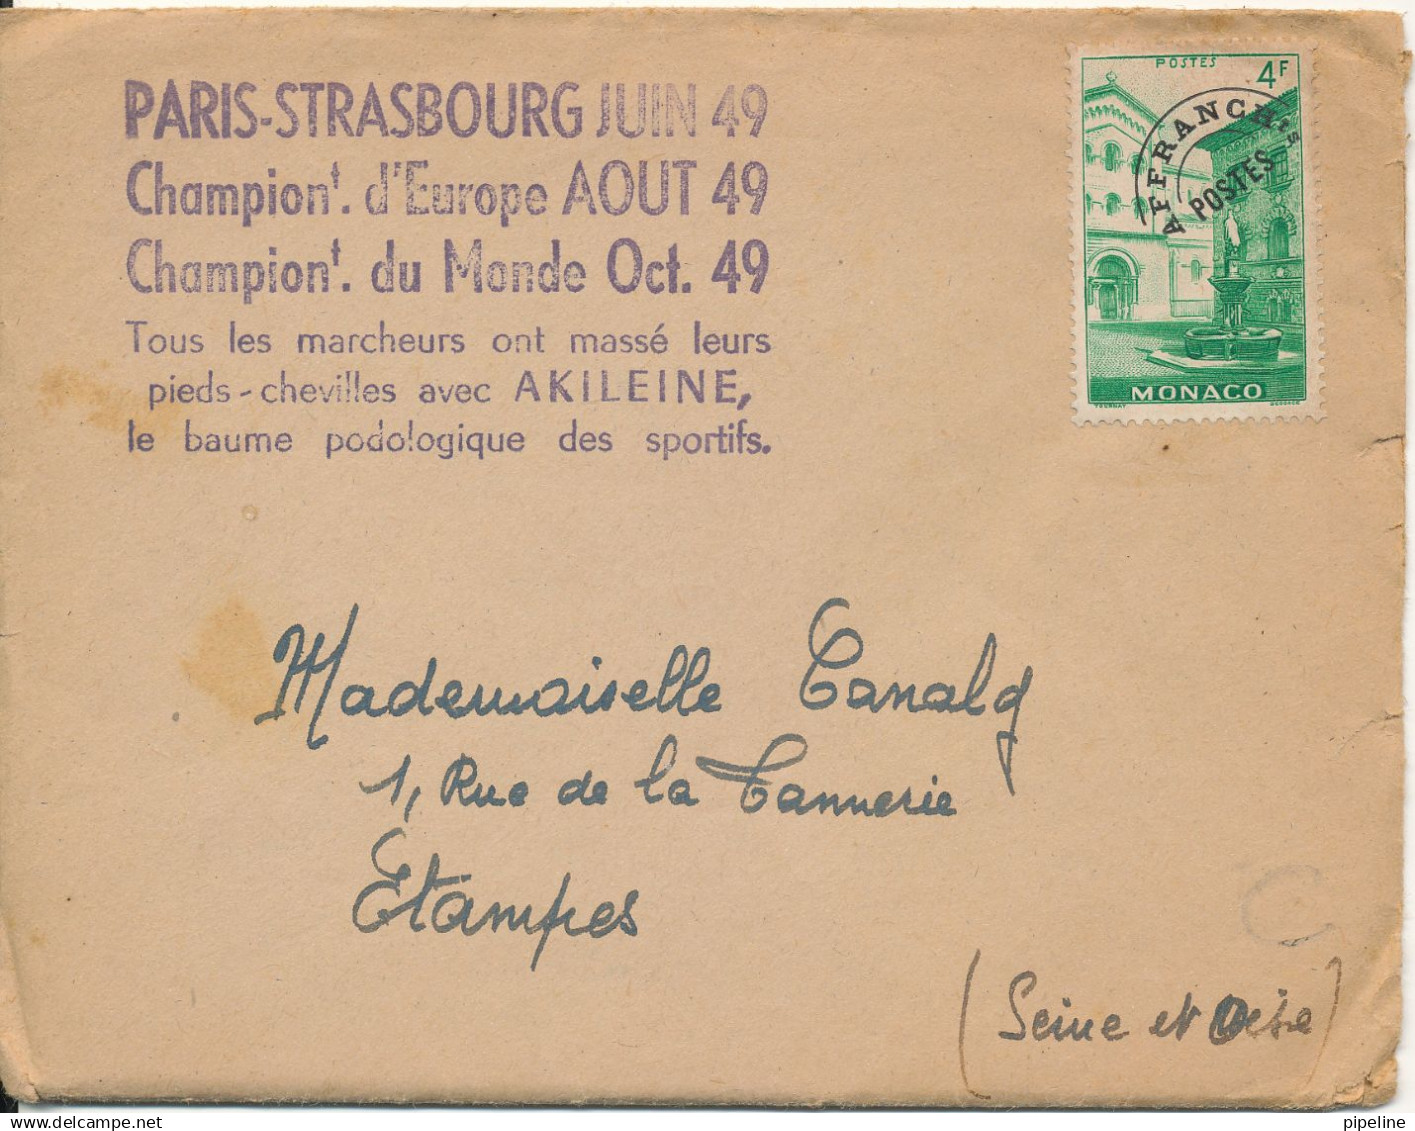 PARIS-STRASBOURG JUIN 49
Championt. d'Europe AOUT 49
Championt. du Monde Oct. 49
Tous les marcheurs ont massé leurs
pieds-chevilles avec AKILEINE,
le baume podologique des sportifs.
POSTES
4F
AFFRANCHts
POSTES
MONACO
Mademoiselle
1, Rue de la Tannerie
Etampes
(Seine et Oise)
C
pipeline